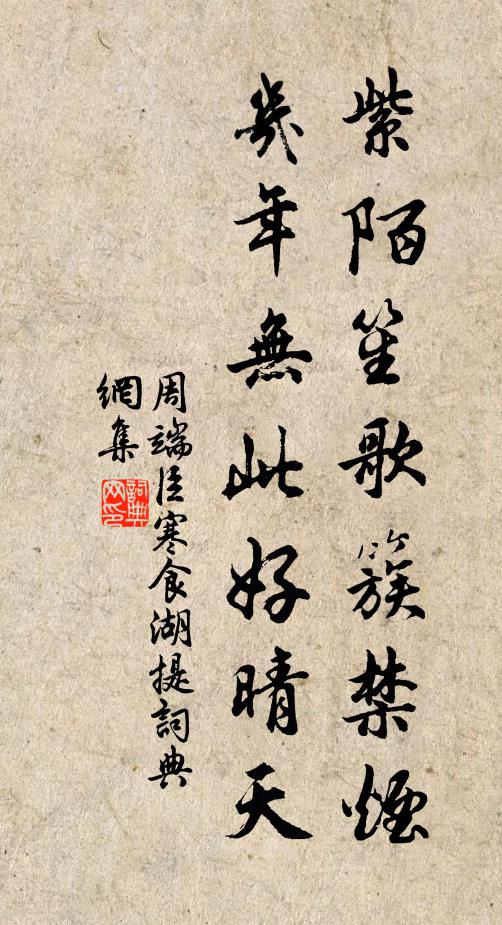 紫陌笙歌簇禁煙
幾年無此好晴天
周端臣寒食湖提詞典
網集
詞典网印